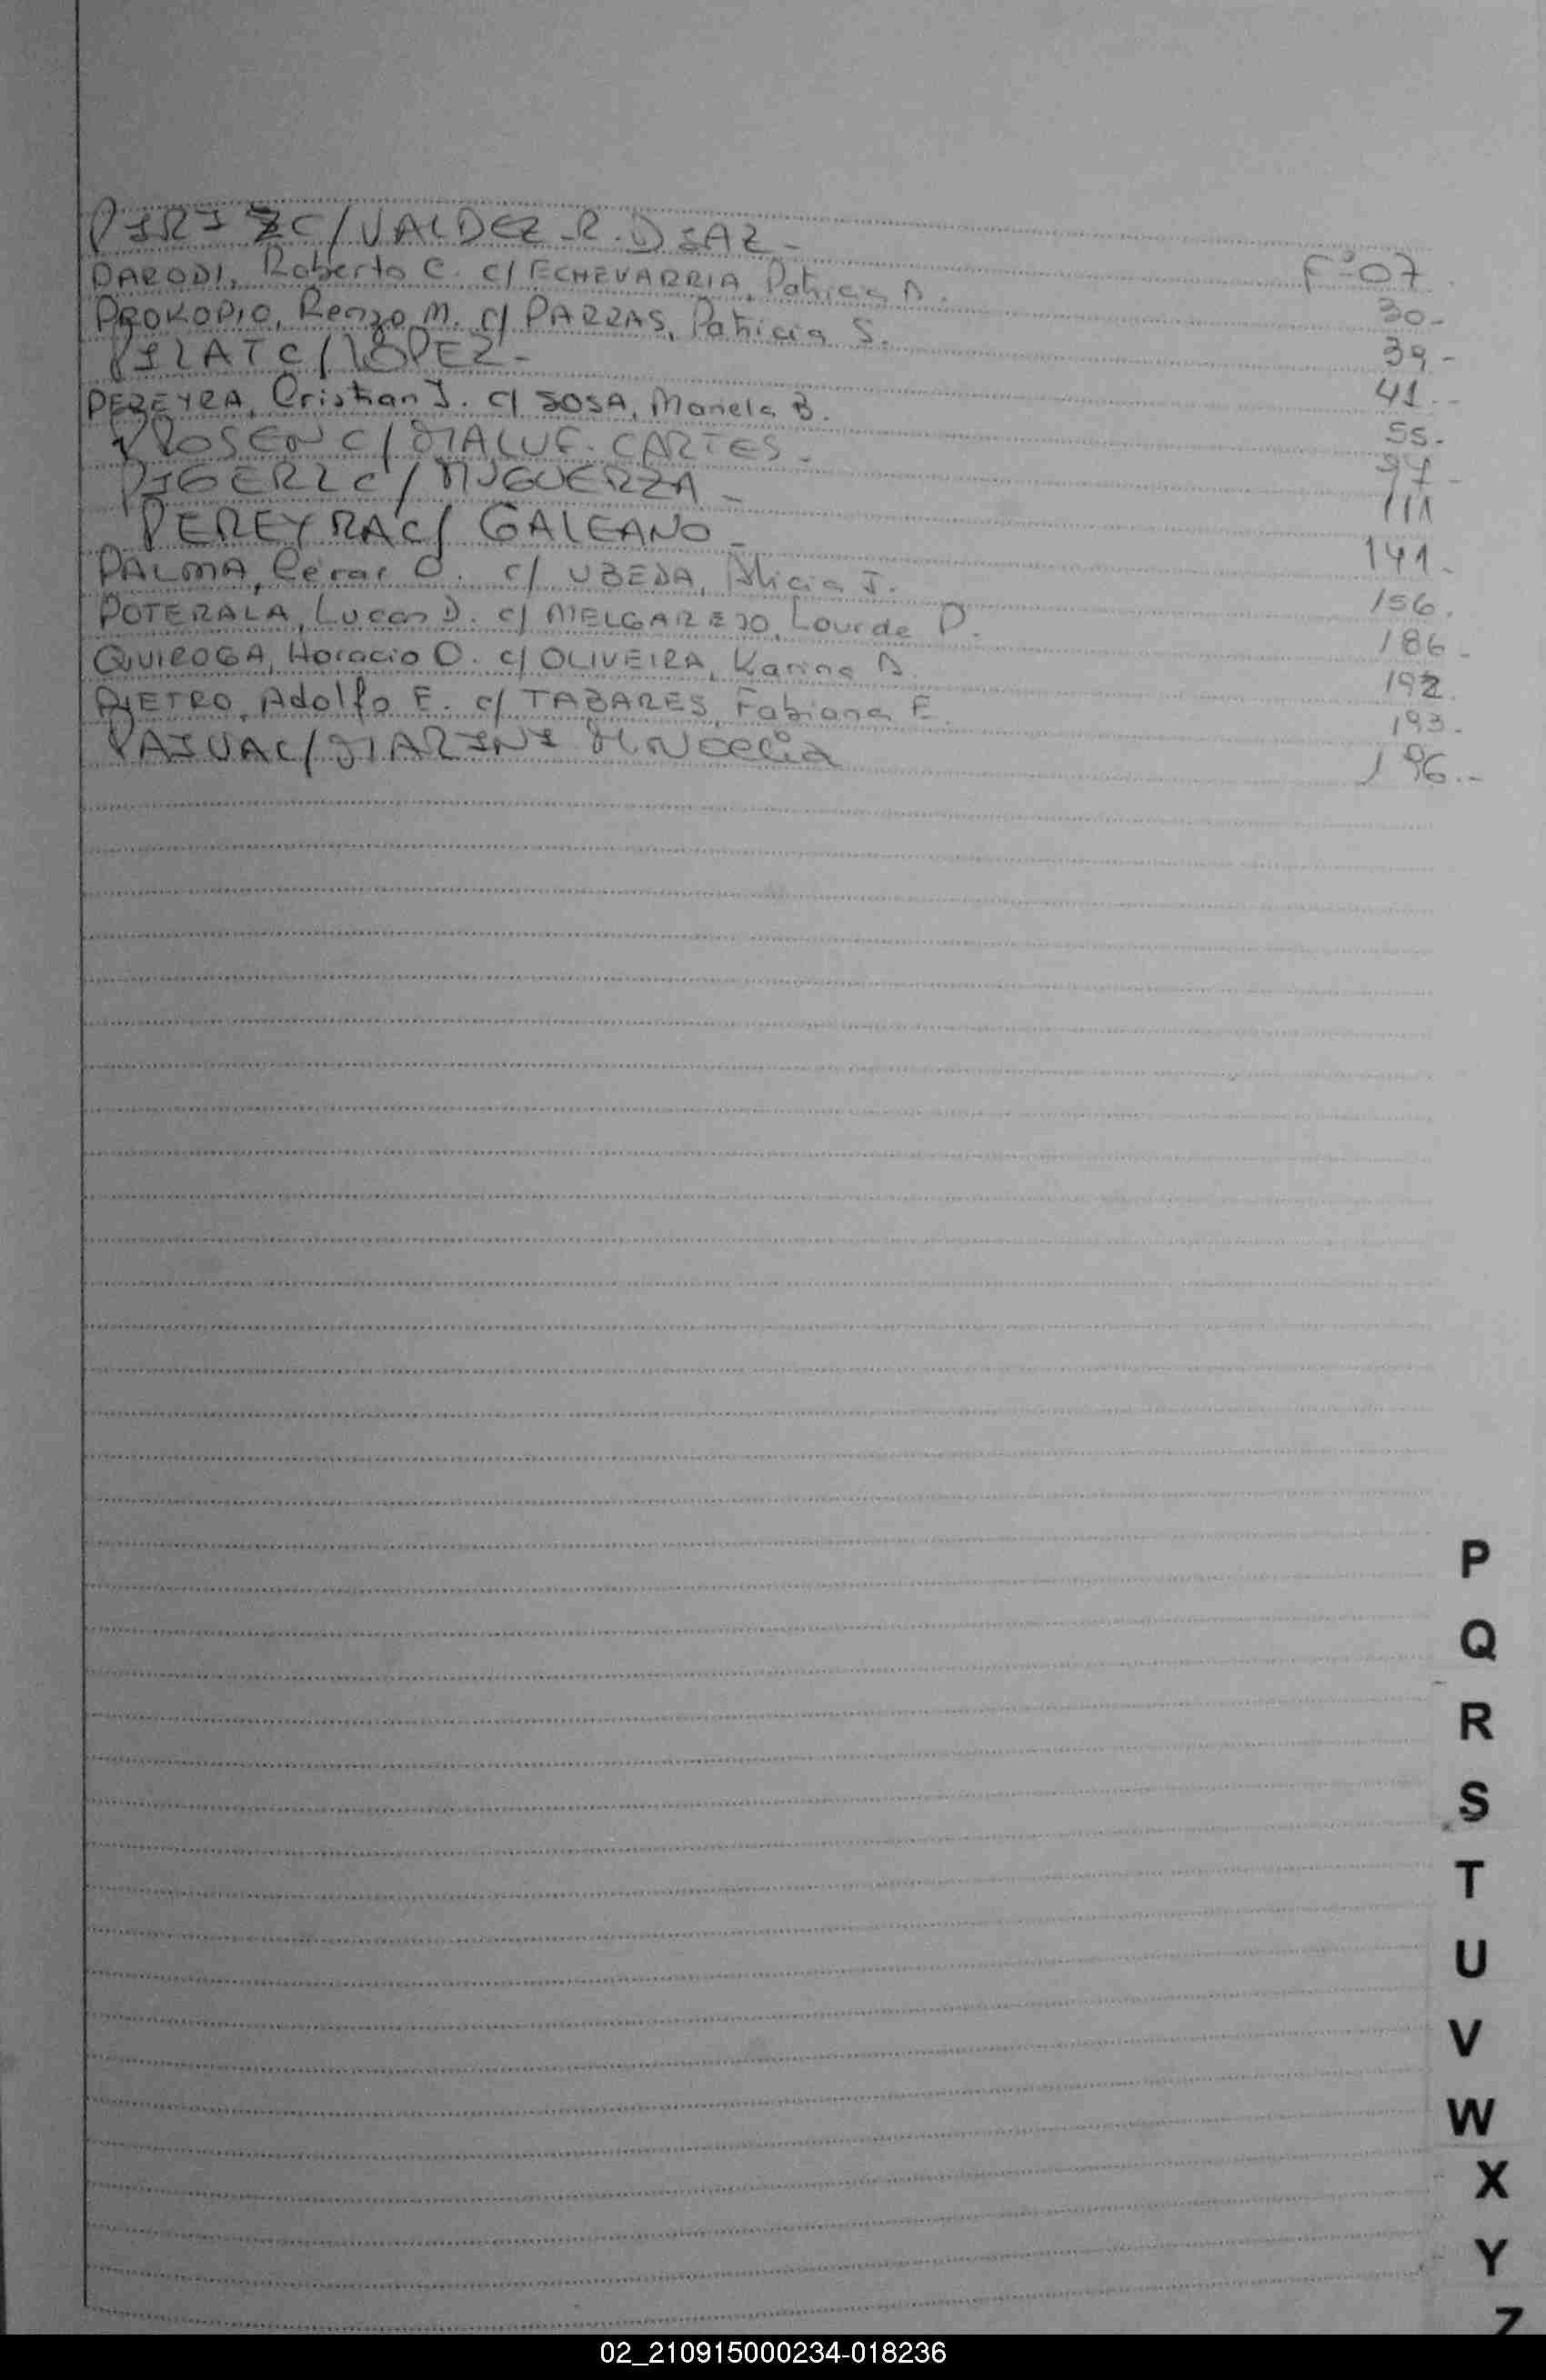 PIRIZ C/ VALDEZ R. DIAZ - Fº 07
PARODI, Roberto C. c/ ECHEVARRIA, Patricia A. 30-
PROKOPIO, Renzo M. c/ PARRAS, Patricia S. 39-
PILAT C/ LOPEZ - 41.-
PEREYRA, Cristian J. c/ SOSA, Mariela B. 55-
C/ MALUF. CARTES - 97-
C/ MUGUERZA - 111
PEREYRA C/ GALEANO - 141-
PALMA, Cesar O. c/ UBEDA, Alicia J. 156.
POTERALA, Lucas D. c/ MELGAREJO, Lourde P. 186-
QUIROGA, Horacio O. c/ OLIVEIRA, Karina A. 192.
PIETRO, Adolfo E. c/ TABARES, Fabiana E. 193.
PAIVA C/ 196.-
P
Q
R
S
T
U
V
W
X
Y
Z
02_210915000234-018236